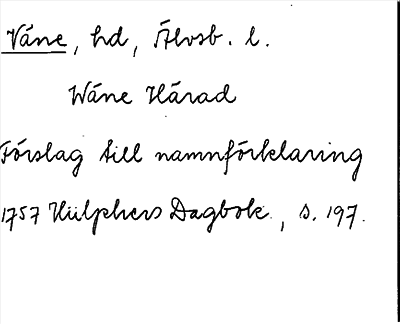 Väne, hd, Älvsb. l.
Wäne Härad
Förslag till namnförklaring
1757 Hülphers Dagbok, s. 197.